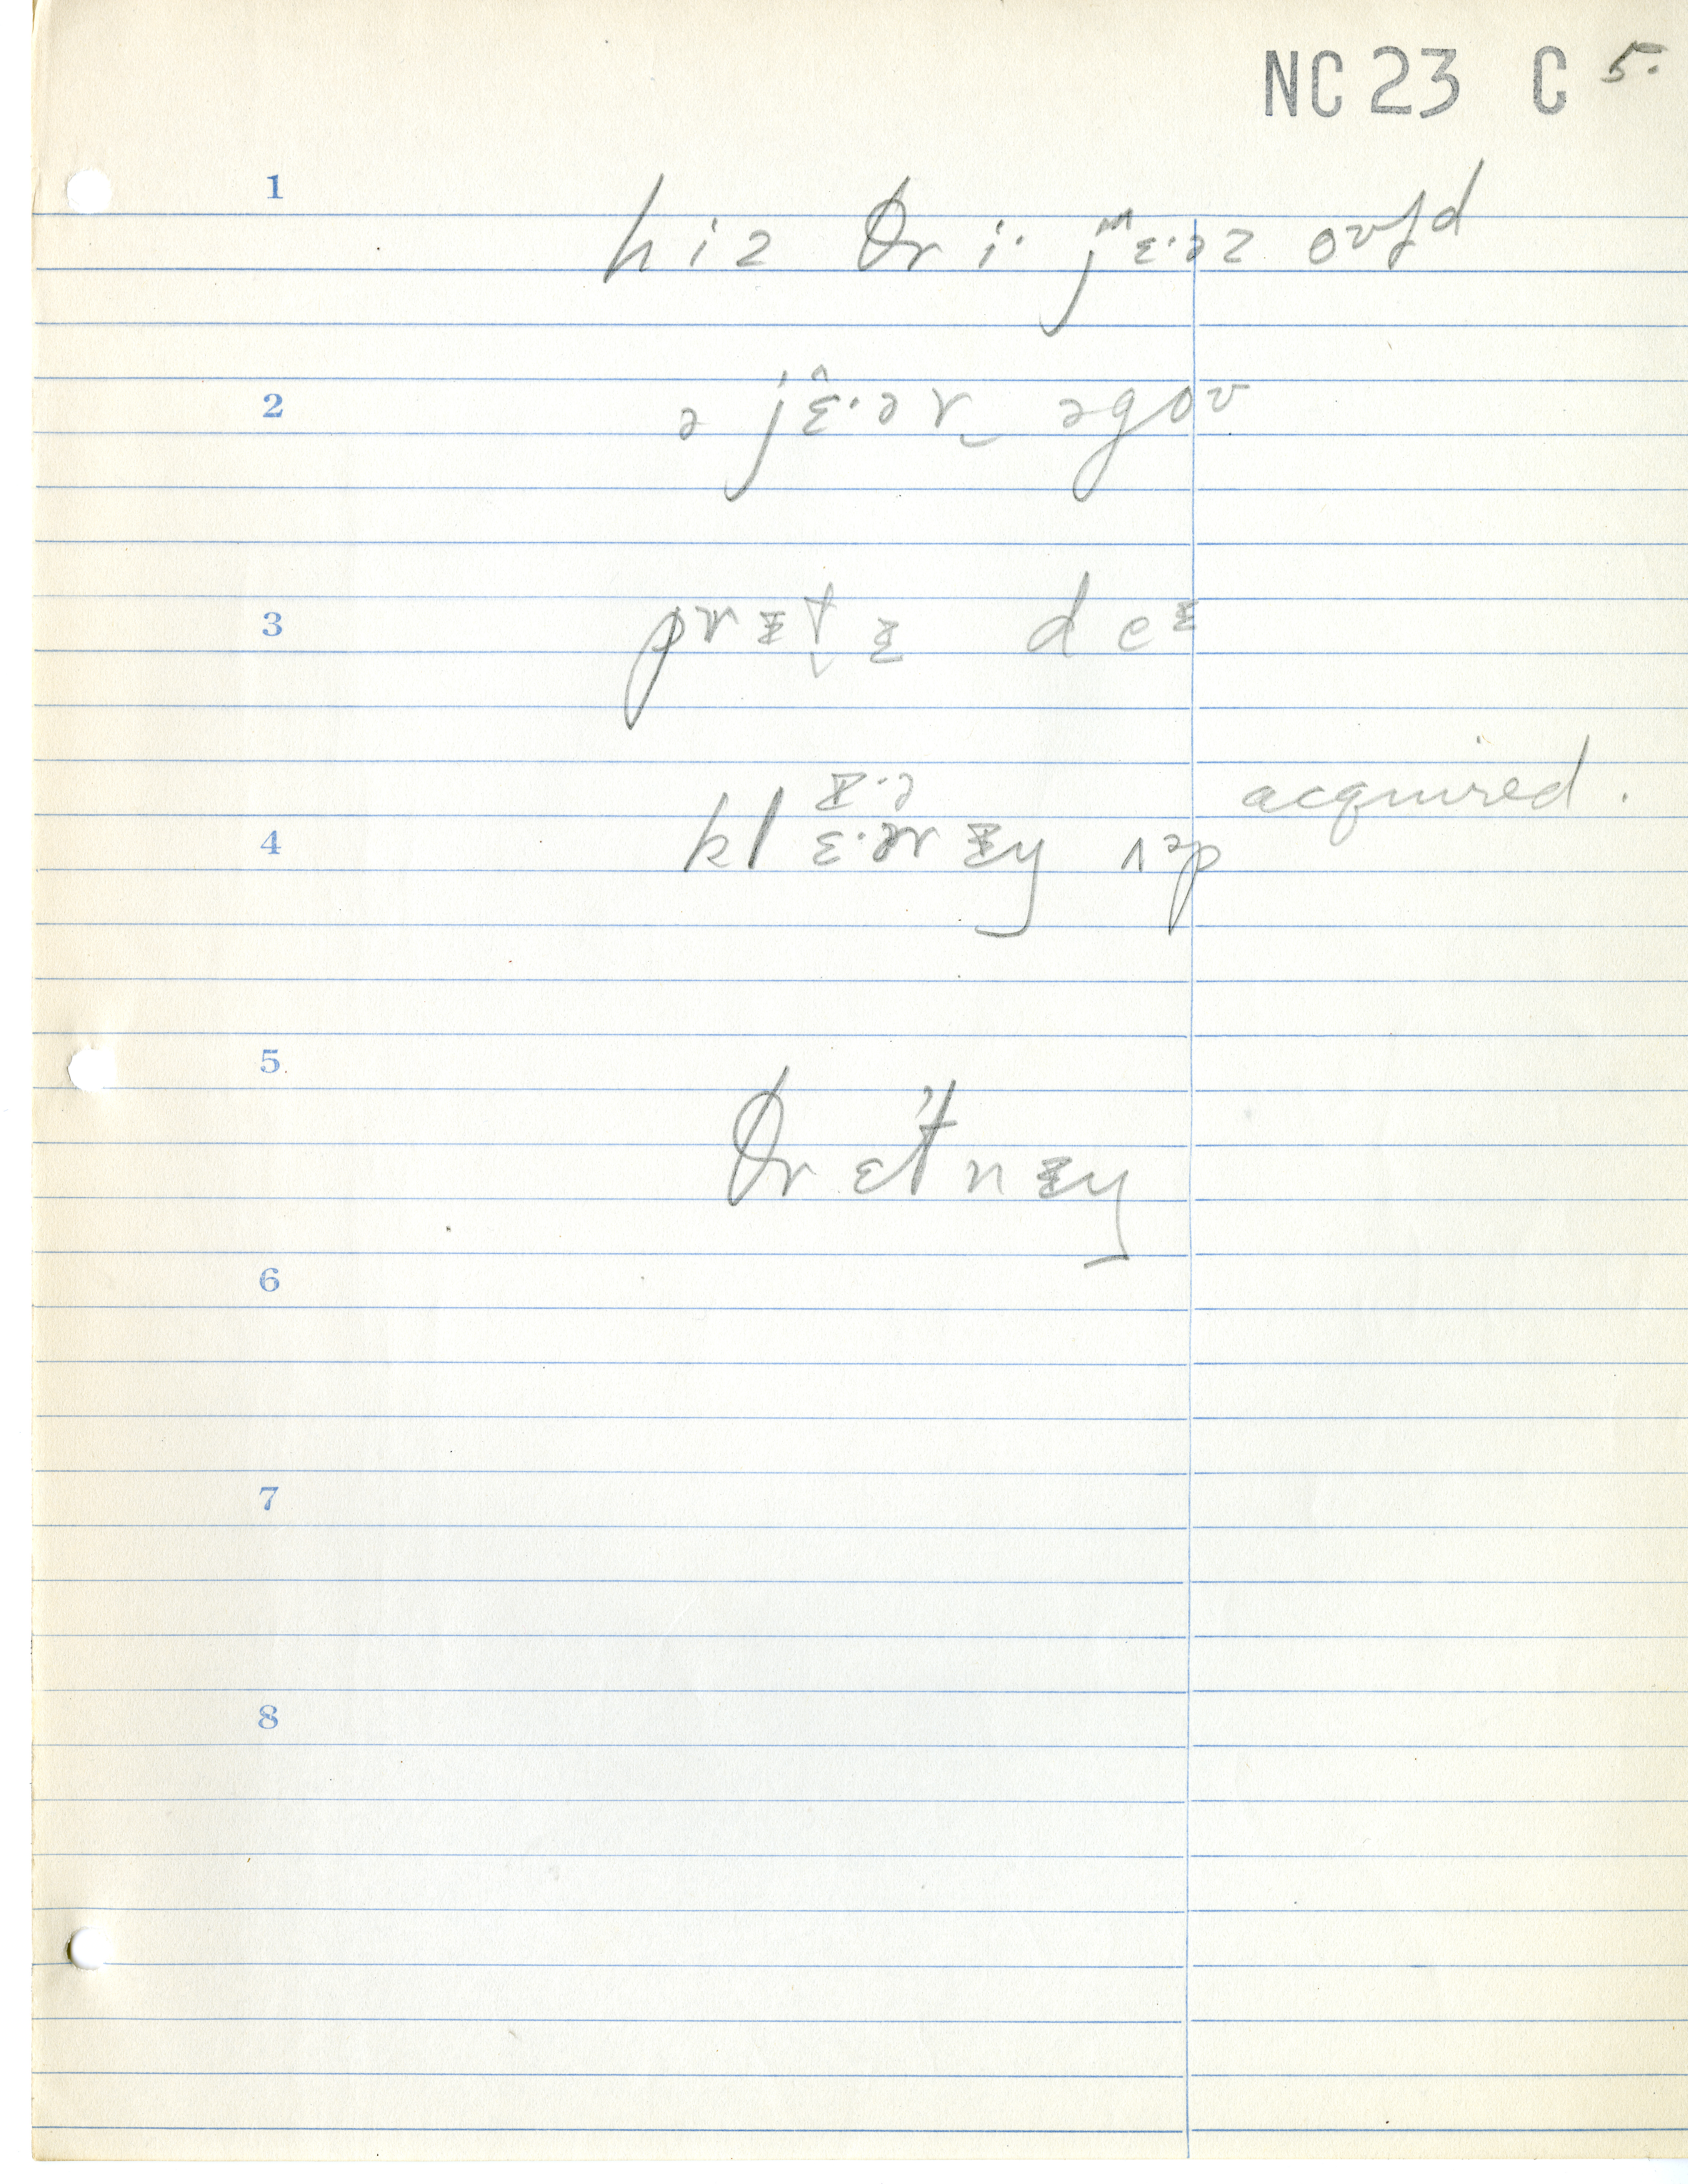 NC 23 C 5.
1 hiz θri· jᵚɛ·əz oʊɫd
2 ə jɛ̂·ə r əgoʊ
3 prɪt̬ɪ deᶦ
4 klɛ·ərɪŋ ʌᵊp acquired.
5 θrɛt'nɪŋ
6
7
8